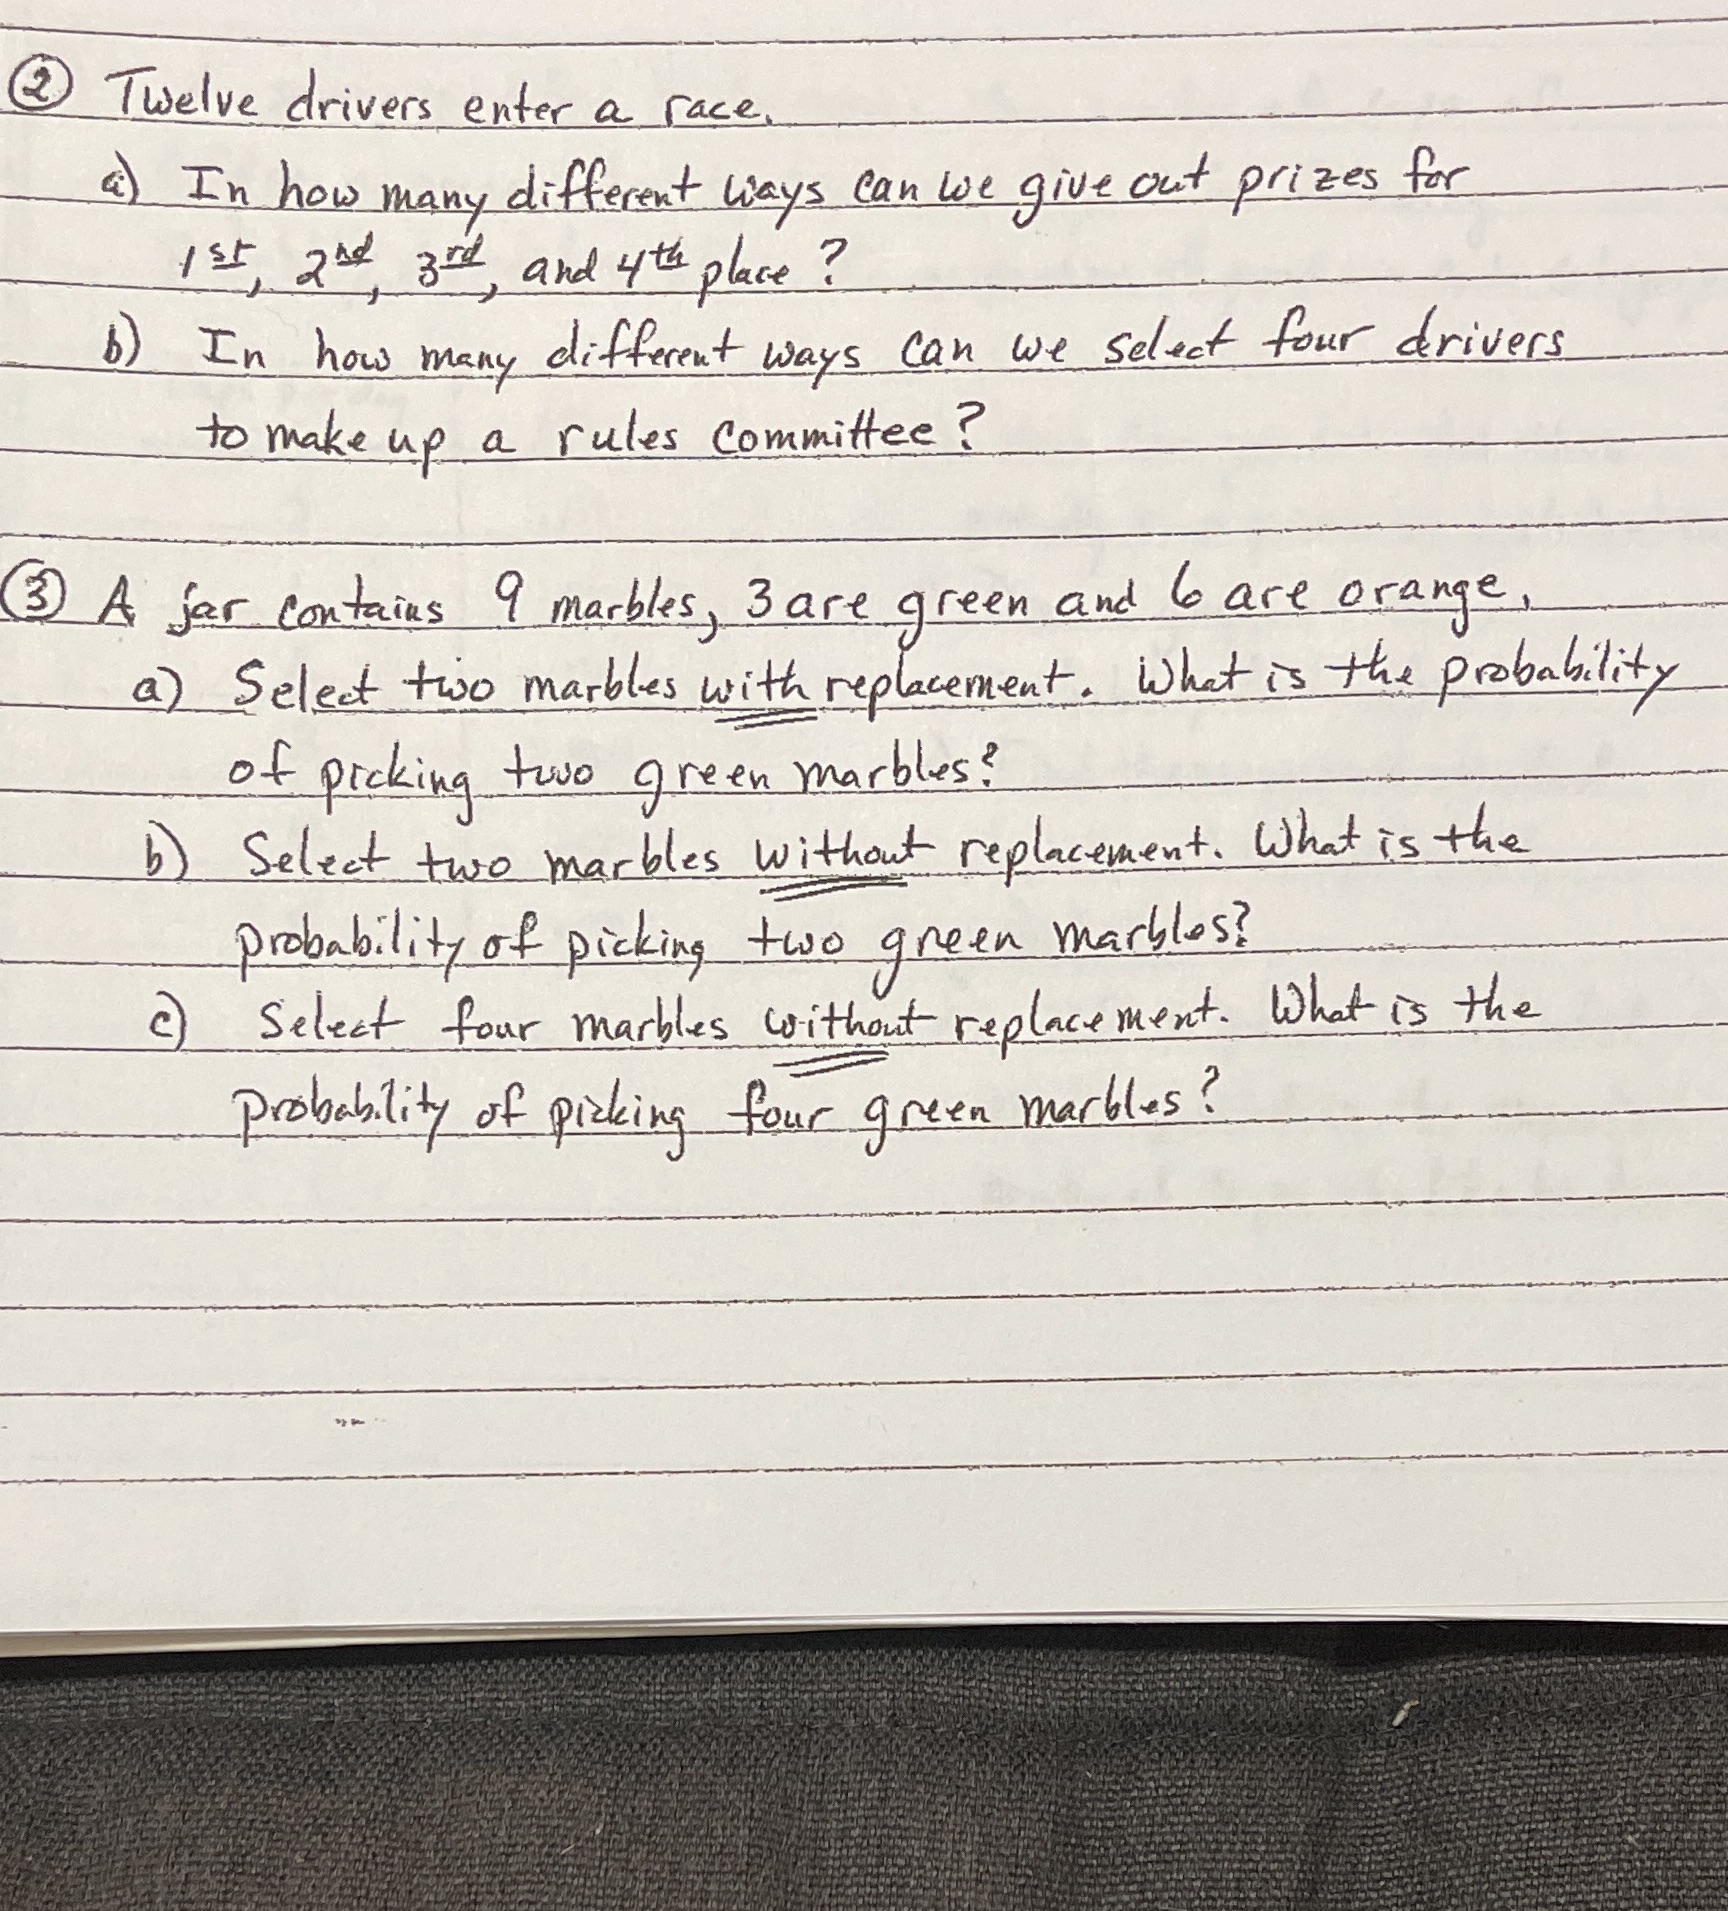 ② Twelve drivers enter a race.
a) In how many different ways can we give out prizes for
1st, 2nd, 3rd, and 4th place?
b) In how many different ways can we select four drivers
to make up a rules committee?
③ A jar contains 9 marbles, 3 are green and 6 are orange.
a) Select two marbles with replacement. What is the probability
of picking two green marbles?
b) Select two marbles without replacement. What is the
probability of picking two green marbles?
c) Select four marbles without replacement. What is the
probability of picking four green marbles?